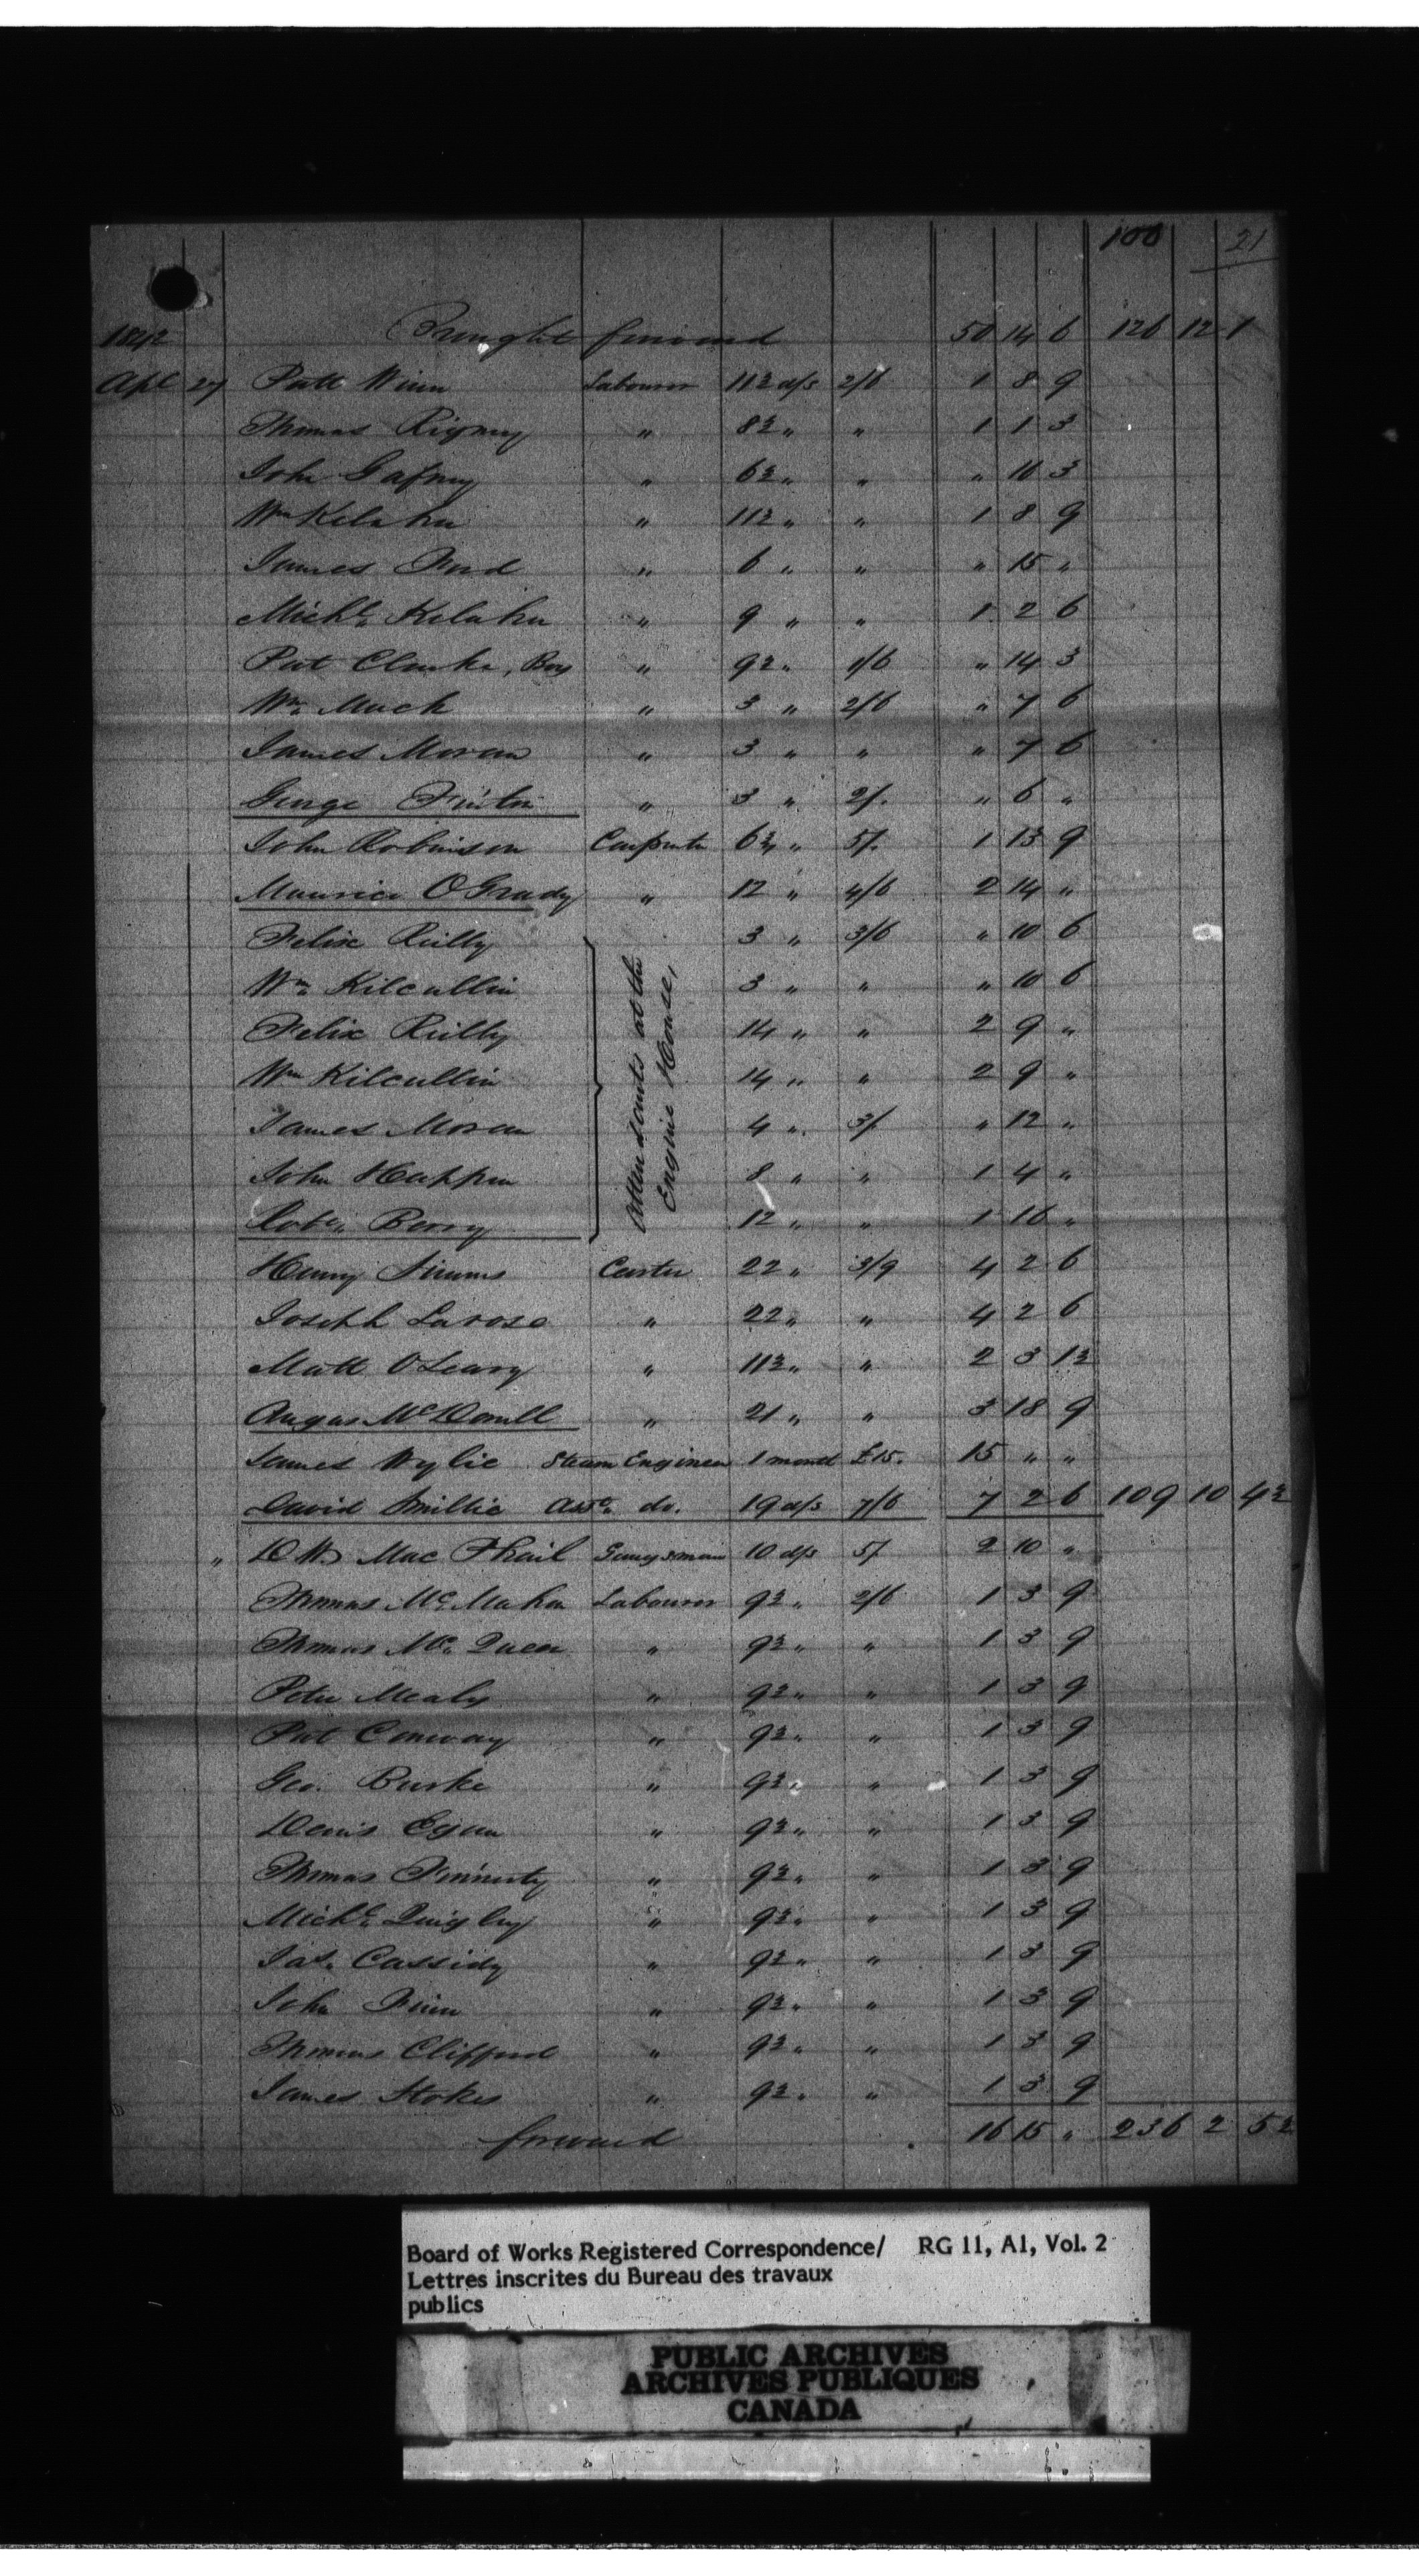 100 21
1842 Brought forward 50 14 6 126 12 1
Apl 27 Patt Winn Labourer 11½ d/s 2/6 1 8 9
Thomas Rigney " 8½ " " 1 1 3
John Gafney " 6½ " " " 16 3
Wm Kelahu " 11½ " " 1 8 9
James Ford " 6 " " " 15 "
Michl. Kelahu " 9 " " 1 2 6
Pat Clarke, Boy " 9½ " 1/6 " 14 3
Wm. Mack " 3 " 2/6 " 7 6
James Moran " 3 " " " 7 6
George Finton " 3 " 2/. " 6 "
John Robinson Carpenter 6¾ " 5/. 1 13 9
Maurice O'Grady " 12 " 4/6 2 14 "
Attendants at the Engine House,
Felix Reilly 3 " 3/6 " 10 6
Wm. Kilcullin 3 " " " 10 6
Felix Reilly 14 " " 2 9 "
Wm Kilcullin 14 " " 2 9 "
James Moran 4 " 3/ " 12 "
John Happin 8 " " 1 4 "
Robt. Berry 12 " " 1 16 "
Henry Simms Carter 22 " 3/9 4 2 6
Joseph Larose " 22 " " 4 2 6
Matt O'Leary " 11½ " " 2 3 1½
Angus McDonell " 21 " " 3 18 9
James Wylie Steam Engineer 1 month £15. 15 " "
David Smillie Asst. do. 19 d/s 7/6 7 2 6 109 10 4½
" D W Mac Phail Gangsman 10 d/s 5/ 2 10 "
Thomas Mc.Mahon Labourer 9½ " 2/6 1 3 9
Thomas Mc.Queen " 9½ " " 1 3 9
Peter Mealy " 9½ " " 1 3 9
Pat Conway " 9½ " " 1 3 9
Geo. Burke " 9½ " " 1 3 9
Denis Egan " 9½ " " 1 3 9
Thomas Finnerty " 9½ " " 1 3 9
Michl. Quigley " 9½ " " 1 3 9
Jas. Cassidy " 9½ " " 1 3 9
John Finn " 9½ " " 1 3 9
Thomas Clifford " 9½ " " 1 3 9
James Stokes " 9½ " " 1 3 9
forward 16 15 " 236 2 5½
Board of Works Registered Correspondence/ RG 11, A1, Vol. 2
Lettres inscrites du Bureau des travaux
publics
PUBLIC ARCHIVES
ARCHIVES PUBLIQUES
CANADA